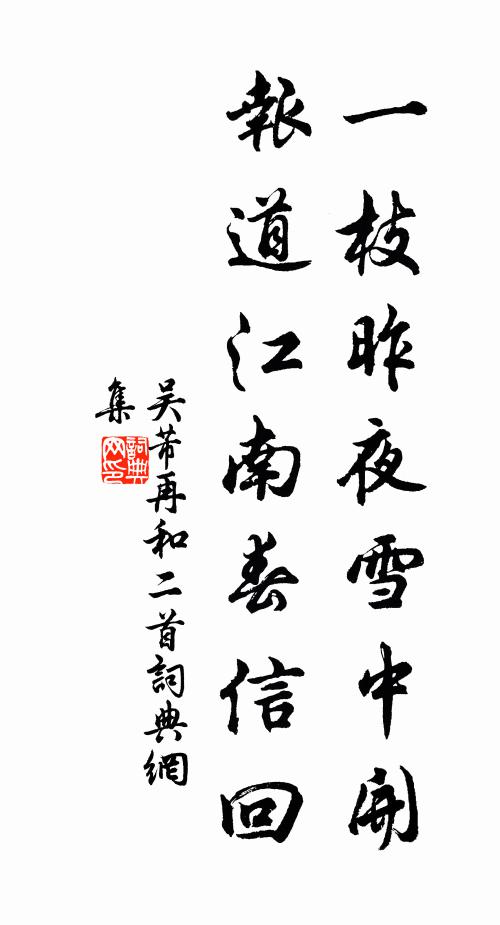 一枝昨夜雪中開
報道江南春信回
吳芾再和二首詞典網
集
詞典
网印